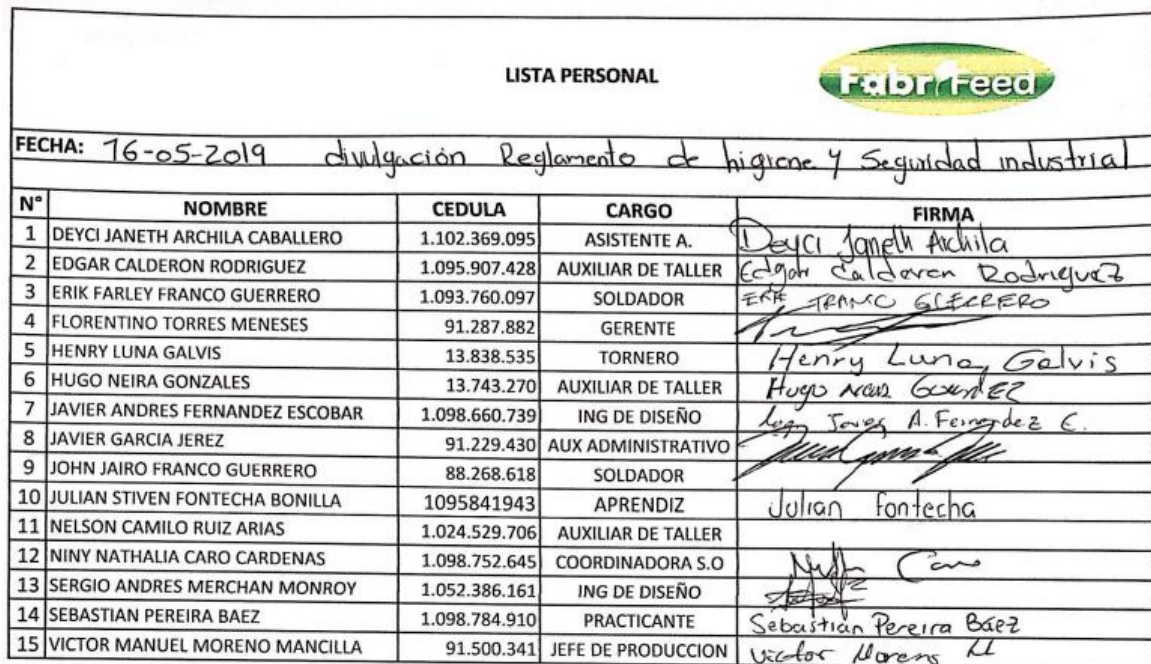 LISTA PERSONAL
FabriFeed
FECHA: 16-05-2019 divulgación Reglamento de higiene y Seguridad industrial
N° NOMBRE CEDULA CARGO FIRMA
1 DEYCI JANETH ARCHILA CABALLERO 1.102.369.095 ASISTENTE A. Deyci Janeth Archila
2 EDGAR CALDERON RODRIGUEZ 1.095.907.428 AUXILIAR DE TALLER Edgar Calderon Rodriguez
3 ERIK FARLEY FRANCO GUERRERO 1.093.760.097 SOLDADOR ERIK FRANCO GUERRERO
4 FLORENTINO TORRES MENESES 91.287.882 GERENTE
5 HENRY LUNA GALVIS 13.838.535 TORNERO Henry Luna Galvis
6 HUGO NEIRA GONZALES 13.743.270 AUXILIAR DE TALLER Hugo Neira
7 JAVIER ANDRES FERNANDEZ ESCOBAR 1.098.660.739 ING DE DISEÑO Javier A. Fernandez E.
8 JAVIER GARCIA JEREZ 91.229.430 AUX ADMINISTRATIVO
9 JOHN JAIRO FRANCO GUERRERO 88.268.618 SOLDADOR
10 JULIAN STIVEN FONTECHA BONILLA 1095841943 APRENDIZ Julian Fontecha
11 NELSON CAMILO RUIZ ARIAS 1.024.529.706 AUXILIAR DE TALLER
12 NINY NATHALIA CARO CARDENAS 1.098.752.645 COORDINADORA S.O Caro
13 SERGIO ANDRES MERCHAN MONROY 1.052.386.161 ING DE DISEÑO
14 SEBASTIAN PEREIRA BAEZ 1.098.784.910 PRACTICANTE Sebastian Pereira Báez
15 VICTOR MANUEL MORENO MANCILLA 91.500.341 JEFE DE PRODUCCION Victor Moreno M